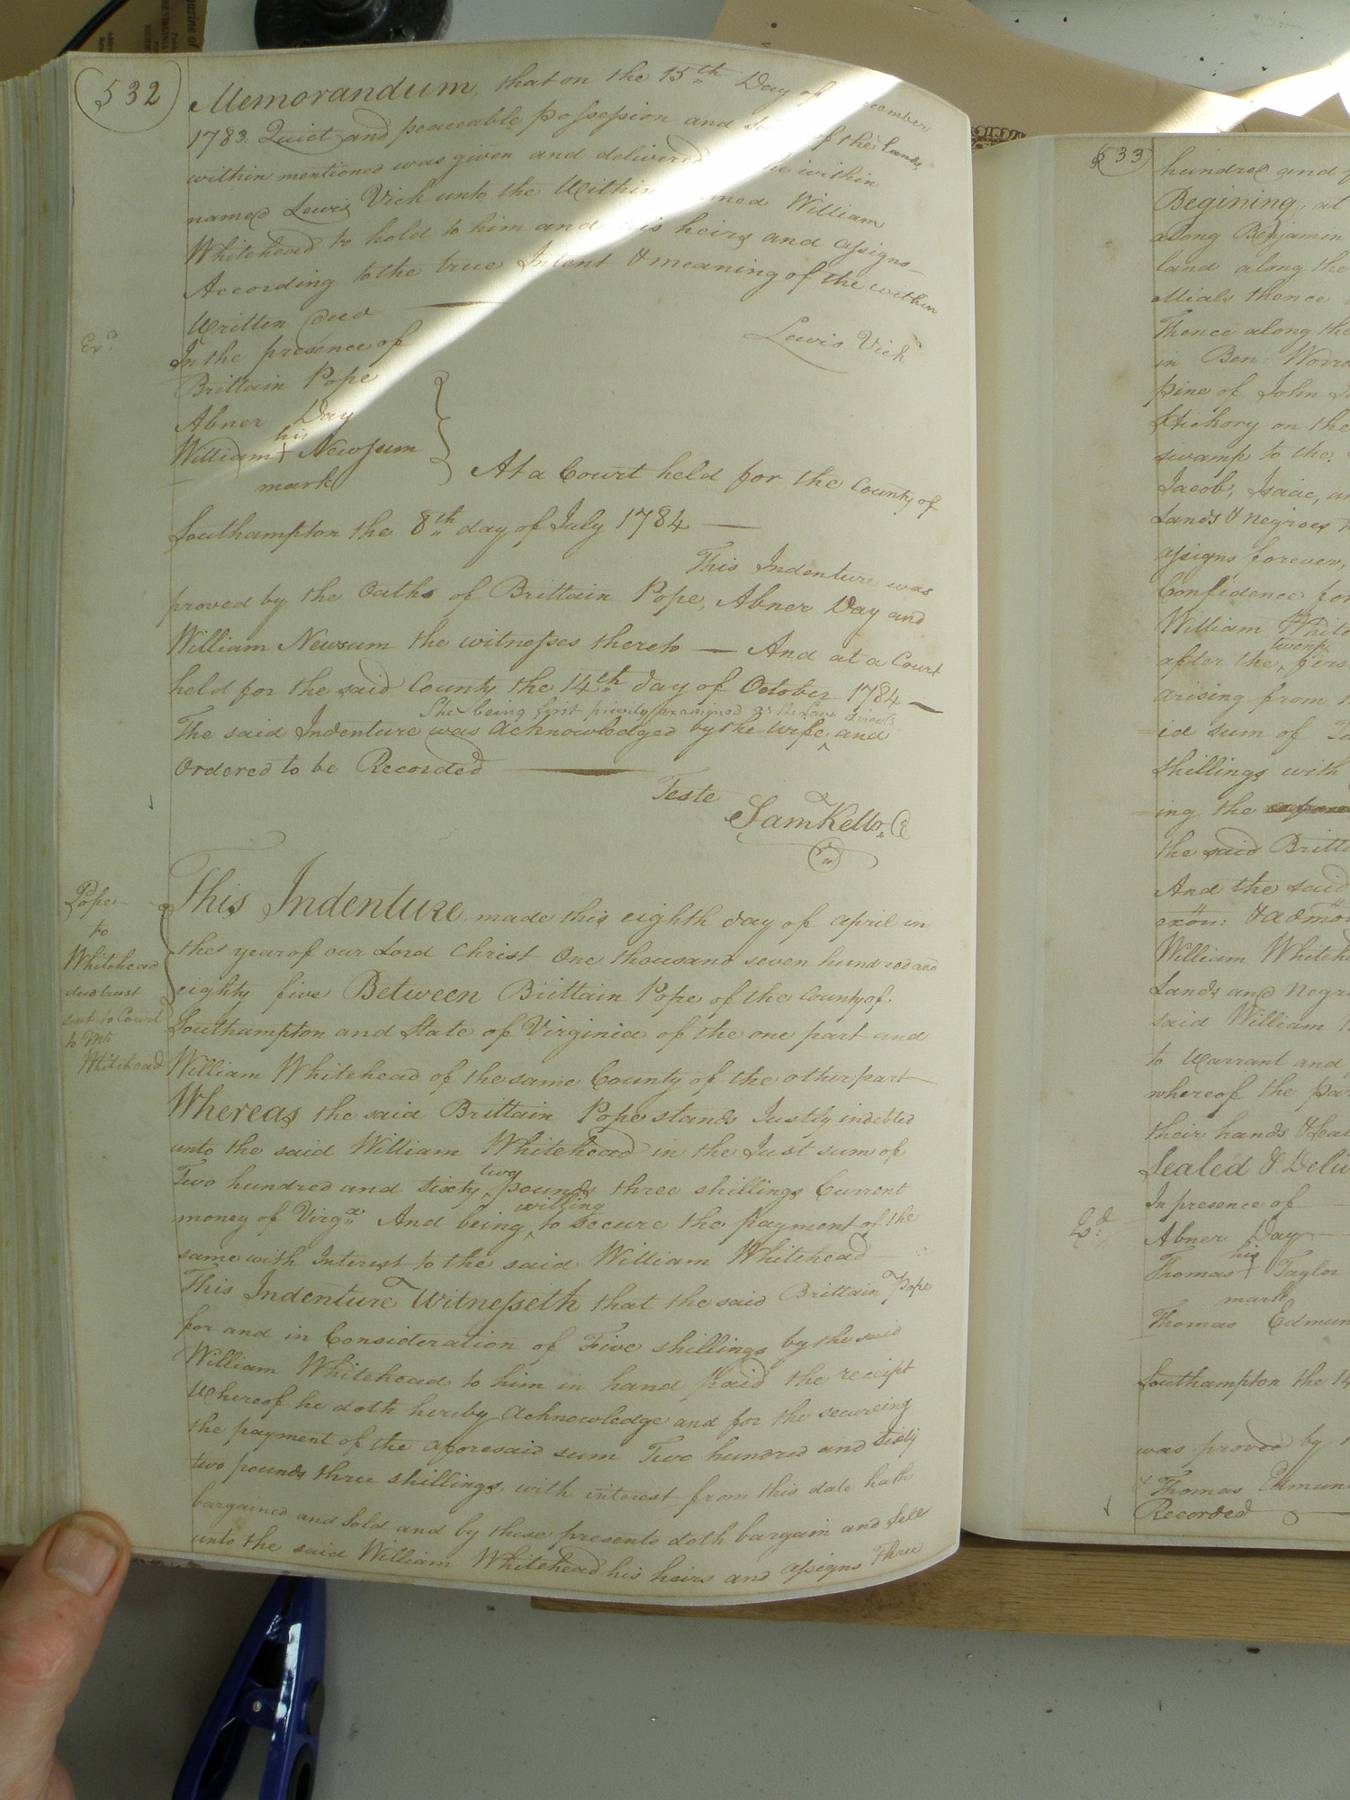 532
Memorandum, that on the 15th Day of
1783. Quiet and peaceable possession and of the Lands
within mentioned was given and delivered within
named Lewis Vick unto the Within William
Whitehead to hold to him and his heirs and assigns
According to the true Intent & meaning of the within
Written deed
Lewis Vick
Exd.
In the presence of
Brittain Pope
Abner Day
his
William + Newsum
mark
At a Court held for the County of
Southampton the 8th day of July 1784
This Indenture was
proved by the Oaths of Brittain Pope, Abner Day and
William Newsum the witnesses thereto — And at a Court
held for the said County the 14th day of October 1784 —
She being first privily examined as the Law directs
The said Indenture was Acknowledged by the wife ^ and
Ordered to be Recorded
Teste
Sam Kello, C
Pope
to
Whitehead
deed trust
sent to Court
to Mr
Whitehead
This Indenture made this eighth day of april in
the year of our Lord Christ One thousand seven hundred and
eighty five Between Brittain Pope of the County of
Southampton and State of Virginia of the one part and
William Whitehead of the same County of the other part
Whereas the said Brittain Pope stands Justly indebted
unto the said William Whitehead in the Just sum of
two
Two hundred and Sixty ^ pounds three shillings Current
willing
money of Virga. And being ^ to secure the payment of the
same with Interest to the said William Whitehead
This Indenture Witnesseth that the said Brittain Pope
for and in Consideration of Five shillings by the said
William Whitehead to him in hand paid the receipt
Whereof he doth hereby Acknowledge and for the secureing
the payment of the aforesaid sum Two hundred and Sixty
two pounds three shillings, with interest from this date hath
bargained and Sold and by these presents doth bargain and Sell
unto the said William Whitehead his heirs and assigns Three
533
hundred and
Begining, at
along Benjamin
land along the
Mials thence
Thence along the
in Ben: Worre
pine of John
Hickory on the
swamp to the
Jacob, Isaac,
Lands & Negroes
assigns forever,
Confidence for
William White
twenty
after the ^ firs
arising from
id sum of
shillings with
ing the
the said Britt
And the said
exôn: & admôn
William Whiteh
Lands and Negr
said William
to Warrant and
whereof the par
their hands & Seal
Sealed & Deliv
In presence of
Exd.
Abner Day
his
Thomas + Taylor
mark
Thomas Edmun
Southampton the 14
was proved by
Thomas Edmun
Recorded